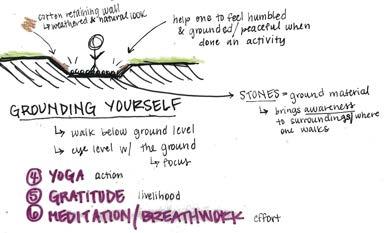 corten retaining wall
↳ weathered & natural look
help one to feel humbled
& grounded/peaceful when
done an activity
STONES = ground material
↳ brings awareness
to surroundings/where
one walks
GROUNDING YOURSELF
↳ walk below ground level
↳ eye level w/ the ground
↳ focus
④ YOGA action
⑤ GRATITUDE livelihood
⑥ MEDITATION/BREATHWORK effort